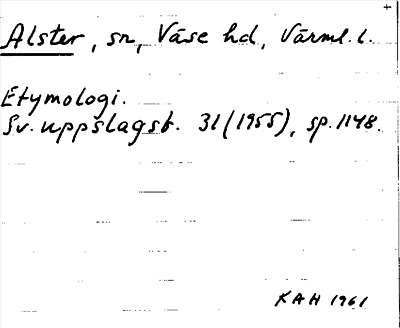 Alster, sn, Väse hd, Värml. l.
Etymologi.
Sv. uppslagsb. 31 (1955), sp. 1148.
KAH 1961